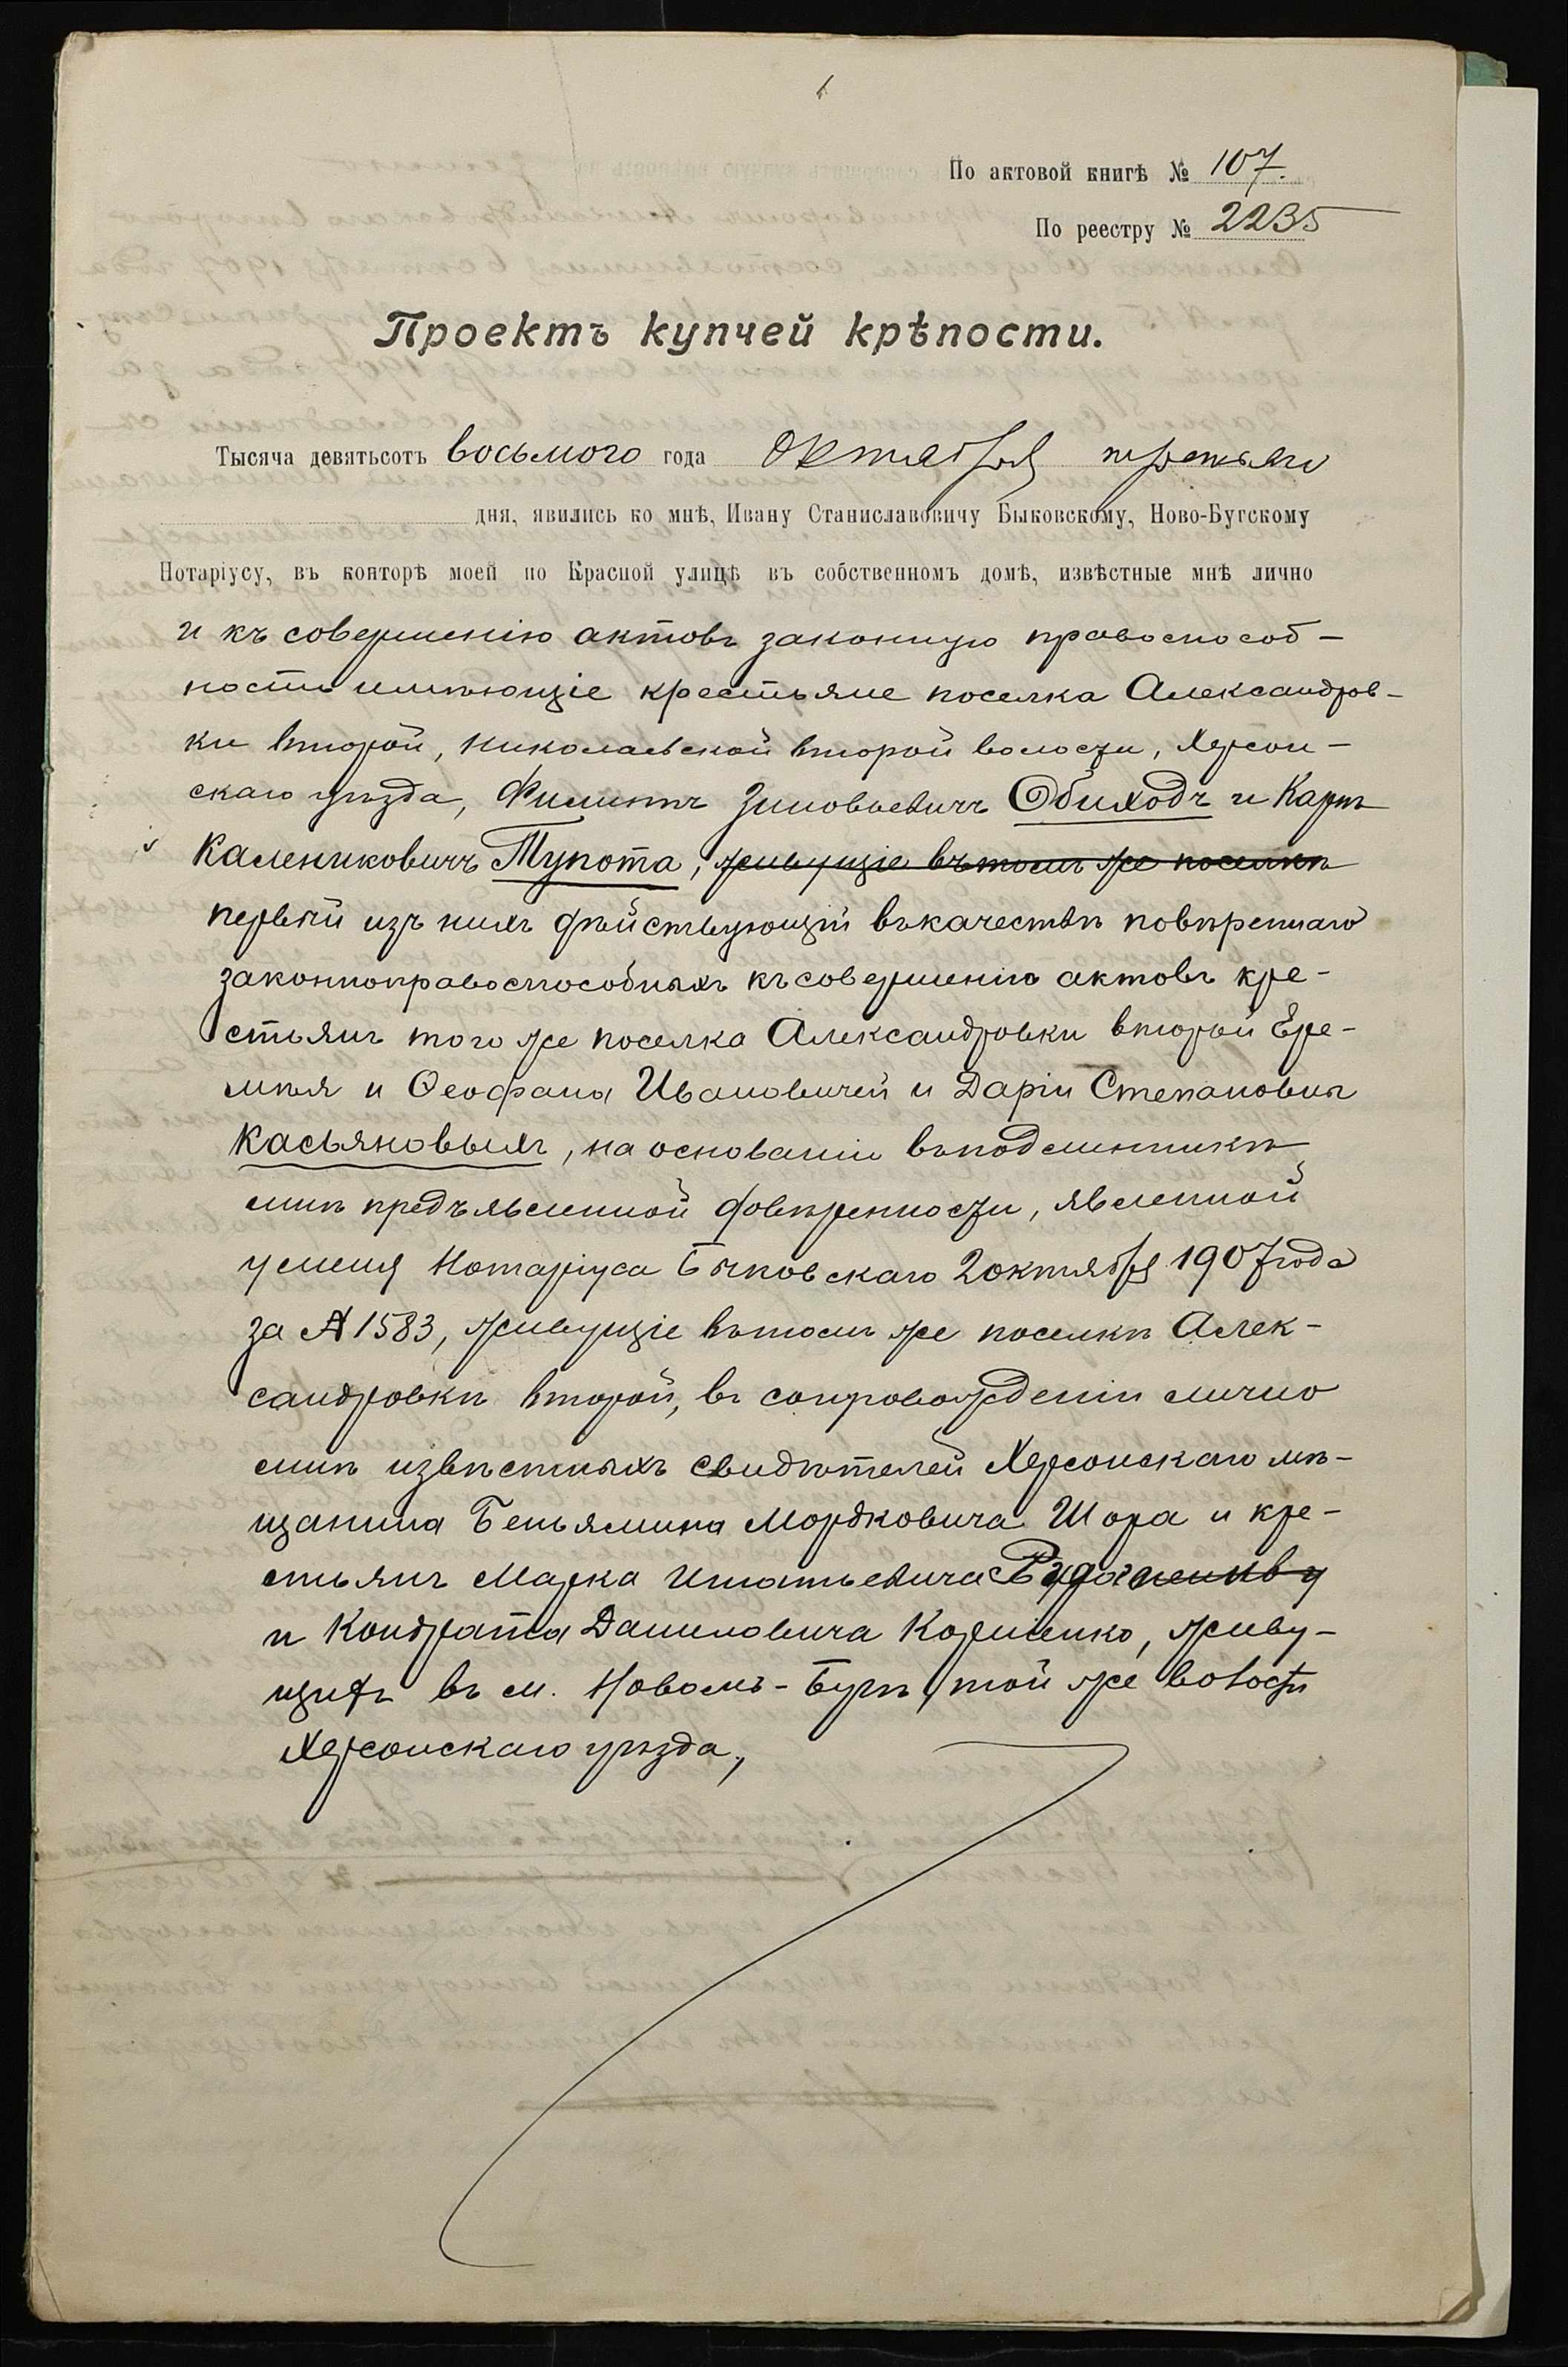 1
По актовой книгѣ № 107.
По реестру № 2235
Проектъ купчей крѣпости.
Тысяча девятьсотъ восьмого года октября третьяго
дня, явились ко мнѣ, Ивану Станиславовичу Быковскому, Ново-Бугскому
Нотаріусу, въ конторѣ моей по Красной улицѣ въ собственномъ домѣ, извѣстные мнѣ лично
и къ совершенію актовъ законную правоспособ-
ность имѣющіе крестьяне поселка Александров-
ки второй, Николаевской второй волости, Херсон-
скаго уѣзда, Филиппъ Зиновьевичъ Обиходъ и Карпъ
Калениковичъ Тупота, живущіе въ томъ же поселкѣ
первый изъ нихъ дѣйствующій въ качествѣ повѣреннаго
законноправоспособныхъ къ совершенію актовъ кре-
стьянъ того же поселка Александровки второй Ере-
мѣя и Ѳеофана Ивановичей и Даріи Степановны
Касьяновыхъ, на основаніи въ подлинникѣ
мнѣ предъявленной довѣренности, явленной
у меня Нотаріуса Быковскаго 2 октября 1907 года
за № 1583, живущіе въ томъ же поселкѣ Алек-
сандровкѣ второй, въ сопровожденіи лично
мнѣ извѣстныхъ свидѣтелей Херсонскаго мѣ-
щанина Беньямина Мордковича Шора и кре-
стьянъ Марка Игнатьевича
и Кондрата Даниловича Корниенко, живу-
щихъ въ м. Новомъ-Бугѣ, той же волости
Херсонскаго уѣзда,